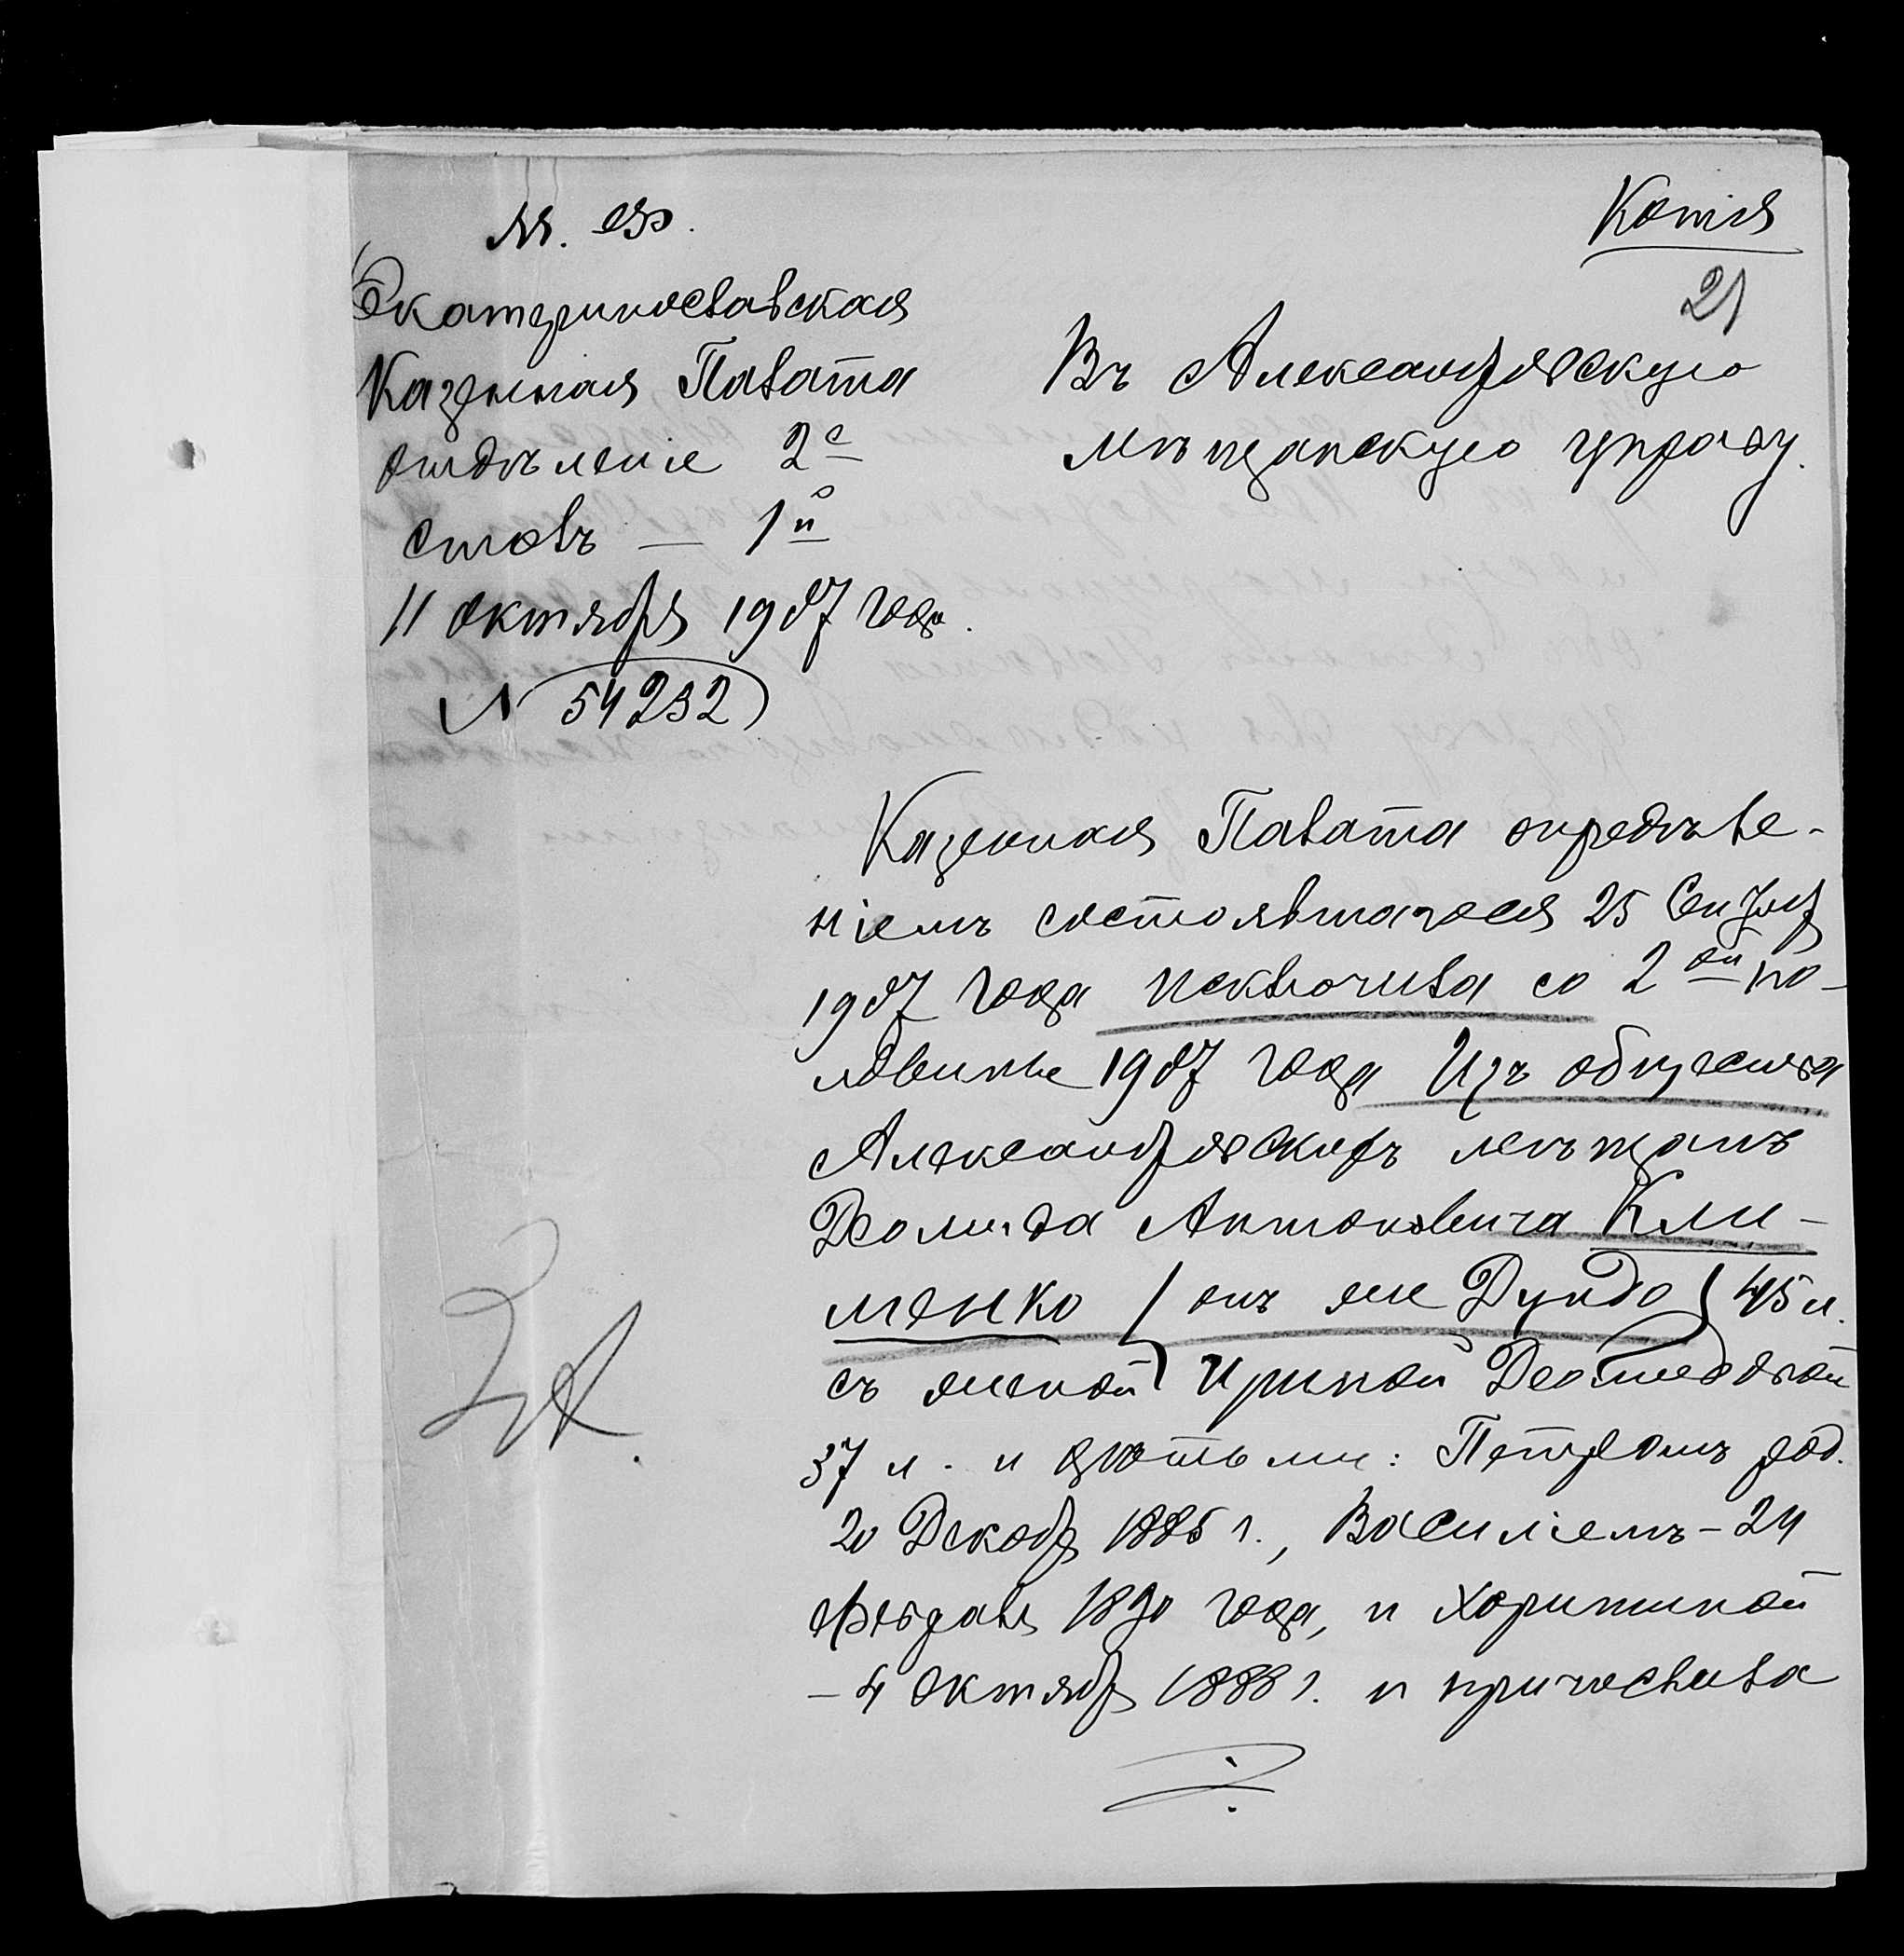 М. Ф.
Копія
21
Екатеринославская
Казенная Палата
отдѣленіе 2е
столъ — 1й
11 октября 1907 года.
№ 54232
Въ Александровскую
мѣщанскую управу.
Казенная Палата опредѣле-
ніемъ состоявшагося 25 Сентябр
1907 года исключила со 2ой по-
ловины 1907 года Изъ общества
Александровскихъ мѣщанъ
Антоновича Кли-
менко (онъ же Дундо) 45 л.
съ женой Ириной
37 л. и дѣтьми: Петромъ род.
20 Декабр 1885 г., Василіемъ – 24
Февраля 1890 года, и Харитиной
– 4 Октябр 1888 г. и причислила